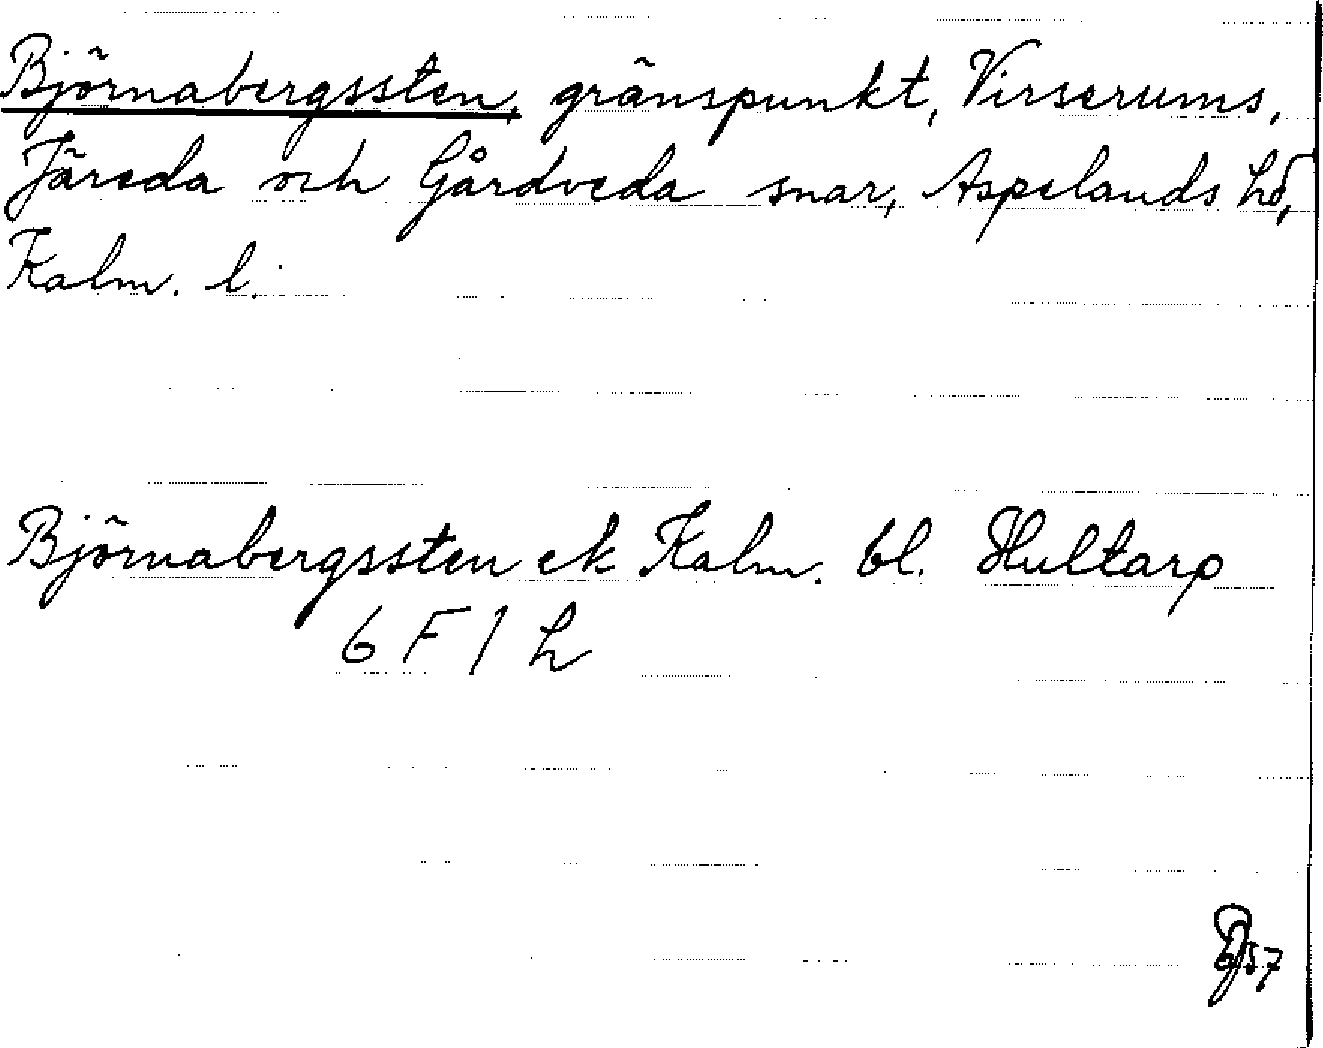 Björnabergssten, gränspunkt, Virserums,
Järeda och Gårdveda snar, Aspelands hd,
Kalm. l.
Björnabergssten ek Kalm. bl. Hultarp
6 F 1 h
57